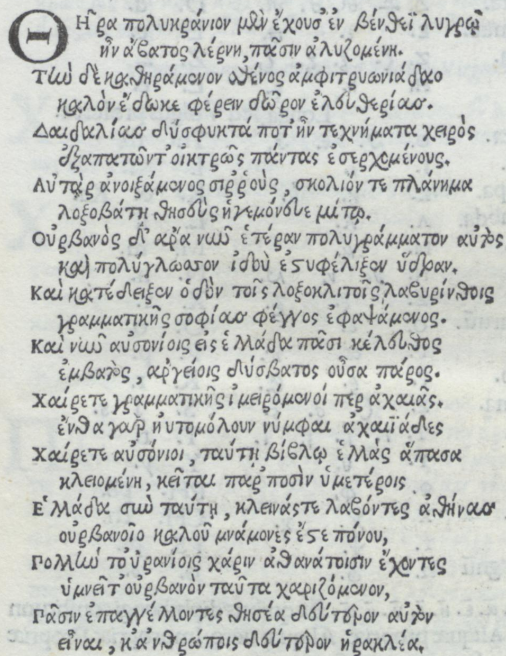 Θῆρα πολυκράνιον μὲν ἔχουσ' ἐν βένθεϊ λυγρῷ
ἦν ἄβατος λέρνη, πᾶσιν ἀλυζομένη.
Τὼ δὲ καθηράμενον σθένος ἀμφιτρυωνιάδαο
καλὸν ἔδωκε φέρειν δῶρον ἐλευθερίας.
Δαιδαλίας δύσφυκτά ποτ' ἦν τεχνήματα χειρὸς
ἐξαπατῶντ' οἰκτρῶς πάντας ἐσερχομένους.
Αὐτὰρ ἀνοιξάμενος σιρροὺς, σκολιόν τε πλάνημα
λοξοβάτη θησεὺς ἡγεμόνευε μίτῳ.
Οὐρβανὸς δ' ἄρα νῦν ἑτέραν πολυγράμματον αὐτὸς
καὶ πολύγλωσσον ἰδοὺ ἐστυφέλιξεν ὕδραν.
Καὶ κατέδειξεν ὁδὸν τοῖς λοξοκλιτοῖς λαβυρίνθοις
γραμματικῆς σοφίας φέγγος ἐφαψάμενος.
Καὶ νῦν αὐσονίοις εἰς ἑλλάδα πᾶσι κέλευθος
ἐμβατὸς, ἀργείοις δύσβατος οὖσα πάρος.
Χαίρετε γραμματικῆς ἱμειρόμενοί περ ἀχαιᾶς.
ἔνθα γὰρ ηὐτομόλουν νύμφαι ἀχαιϊάδες
Χαίρετε αὐσόνιοι, ταύτῃ βίβλῳ ἑλλὰς ἅπασα
κλειομένη, κεῖται πὰρ ποσὶν ὑμετέροις
Ἑλλάδα σὺν ταύτῃ, κλεινάς τε λαβόντες ἀθήνας
οὐρβανοῖο καλοῦ μνάμονές ἐστε πόνου,
Πολλὴν τ' οὐρανίοις χάριν ἀθανάτοισιν ἔχοντες
ὑμνεῖτ' οὐρβανὸν ταῦτα χαριζόμενον,
Πᾶσιν ἐπαγγέλλοντες θησέα δεύτερον αὐτὸν
εἶναι, κ' ἀνθρώποις δεύτερον ἡρακλέα.